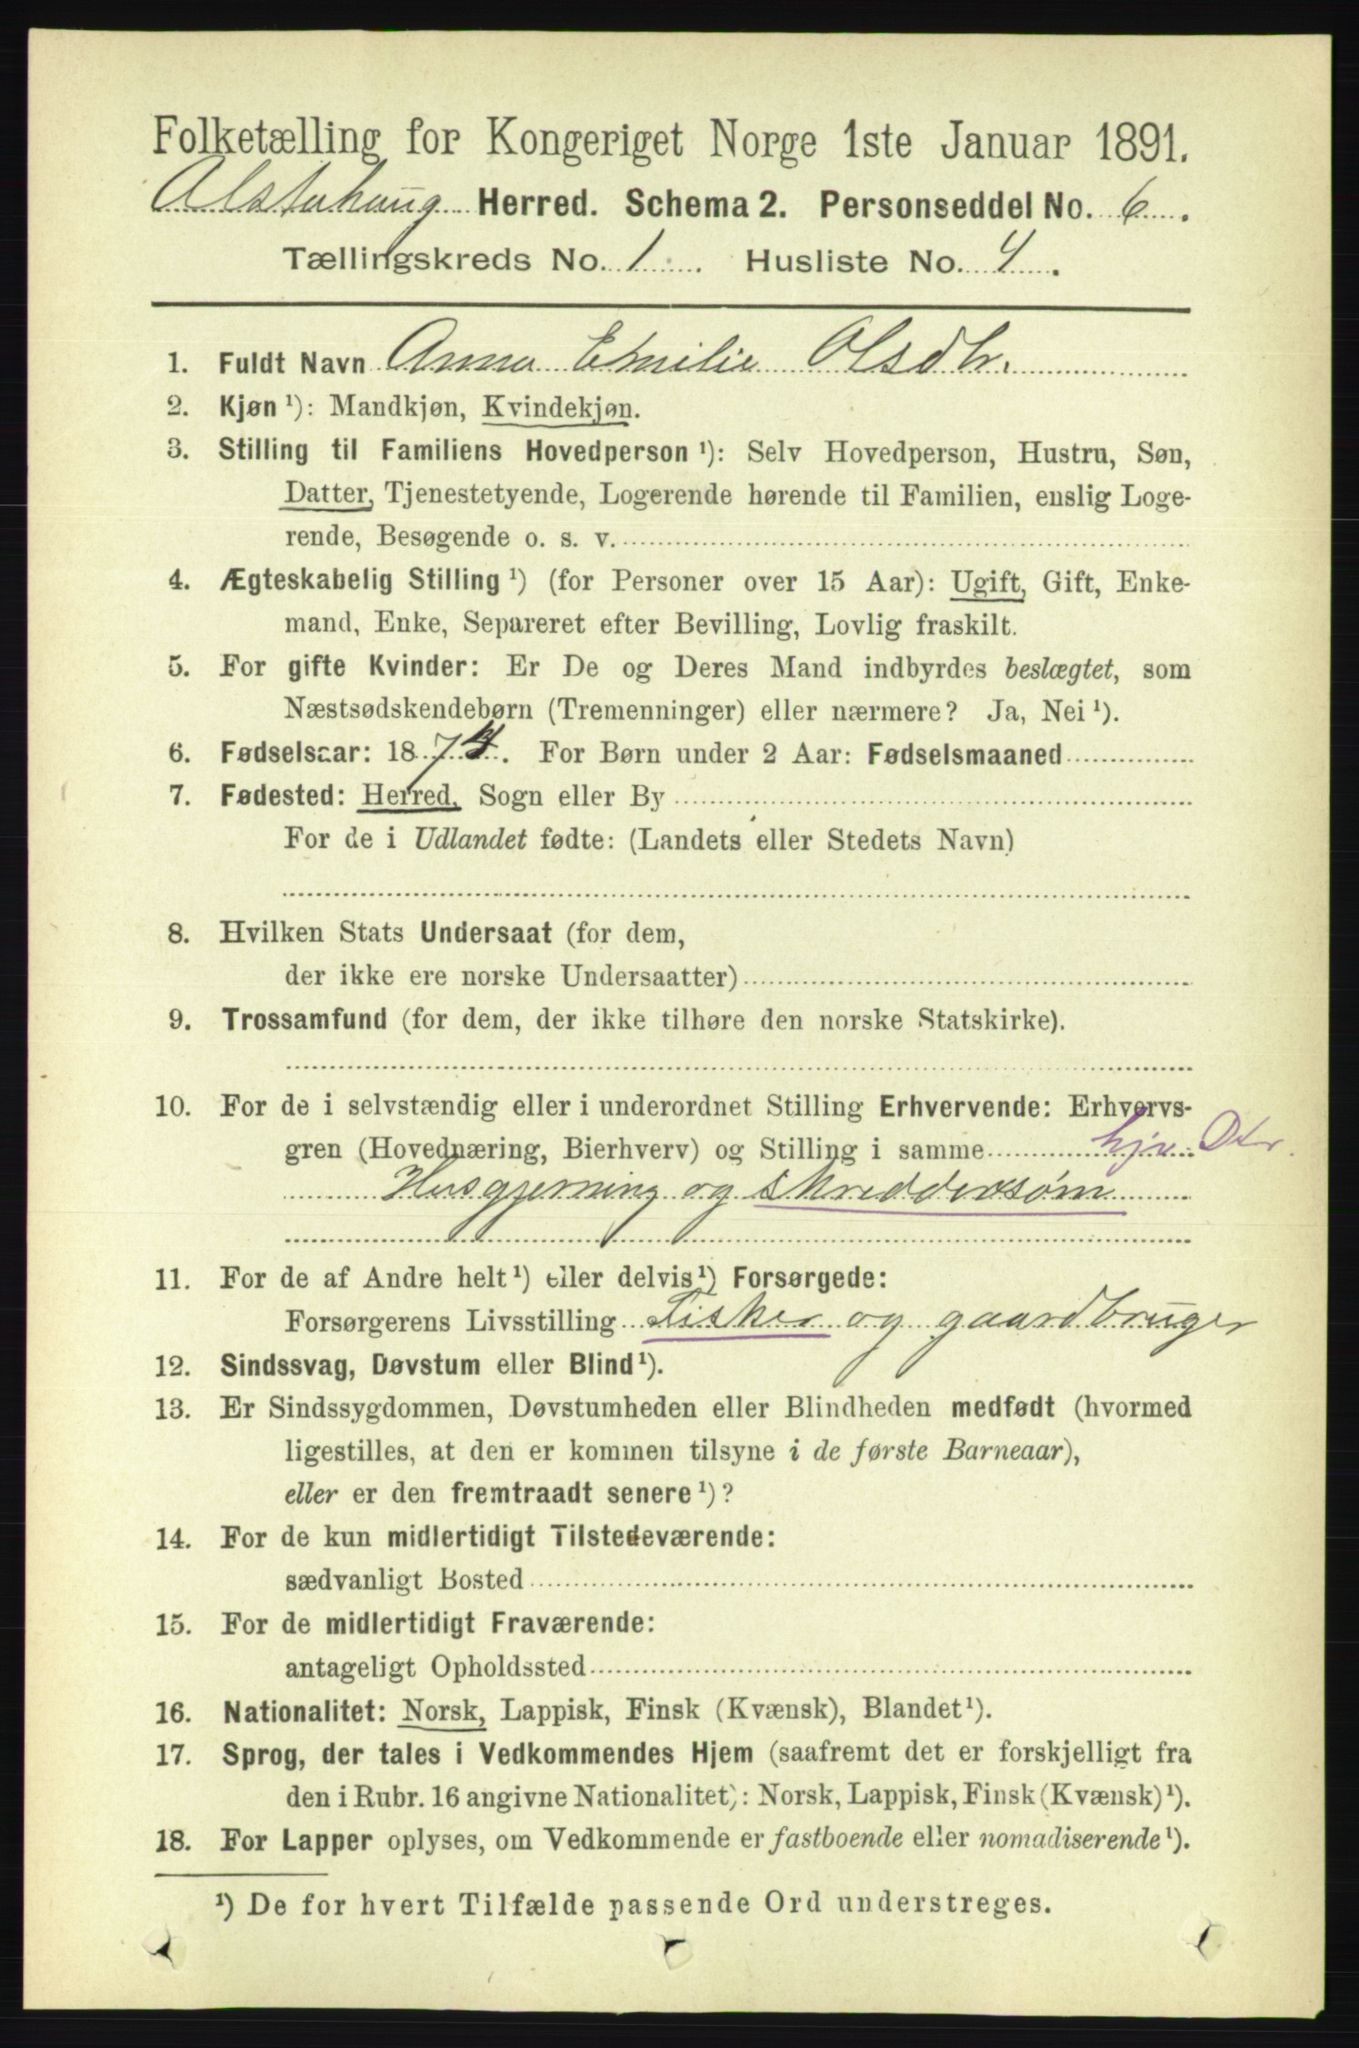 Folketælling for Kongeriget Norge 1ste Januar 1891.
Alstahaug Herred. Schema 2. Personseddel No. 6.
Tællingskreds No. 1. Husliste No. 4.
1. Fuldt Navn Anna Emilie Olsdtr.
2. Kjøn ¹): Mandkjøn, Kvindekjøn.
3. Stilling til Familiens Hovedperson ¹): Selv Hovedperson, Hustru, Søn,
Datter, Tjenestetyende, Logerende hørende til Familien, enslig Loge-
rende, Besøgende o. s. v.
4. Ægteskabelig Stilling ¹) (for Personer over 15 Aar): Ugift, Gift, Enke-
mand, Enke, Separeret efter Bevilling, Lovlig fraskilt.
5. For gifte Kvinder: Er De og Deres Mand indbyrdes beslægtet, som
Næstsødskendebørn (Tremenninger) eller nærmere? Ja, Nei ¹).
6. Fødselsaar: 1874. For Børn under 2 Aar: Fødselsmaaned
7. Fødested: Herred, Sogn eller By
For de i Udlandet fødte: (Landets eller Stedets Navn)
8. Hvilken Stats Undersaat (for dem,
der ikke ere norske Undersaatter)
9. Trossamfund (for dem, der ikke tilhøre den norske Statskirke).
10. For de i selvstændig eller i underordnet Stilling Erhvervende: Erhvervs-
gren (Hovednæring, Bierhverv) og Stilling i samme hjv. Dtr.
Husgjerning og skreddersøm
11. For de af Andre helt ¹) eller delvis ¹) Forsørgede:
Forsørgerens Livsstilling Fisker og gaardbruger
12. Sindssvag, Døvstum eller Blind ¹).
13. Er Sindssygdommen, Døvstumheden eller Blindheden medfødt (hvormed
ligestilles, at den er kommen tilsyne i de første Barneaar),
eller er den fremtraadt senere ¹)?
14. For de kun midlertidigt Tilstedeværende:
sædvanligt Bosted
15. For de midlertidigt Fraværende:
antageligt Opholdssted
16. Nationalitet: Norsk, Lappisk, Finsk (Kvænsk), Blandet ¹).
17. Sprog, der tales i Vedkommendes Hjem (saafremt det er forskjelligt fra
den i Rubr. 16 angivne Nationalitet): Norsk, Lappisk, Finsk (Kvænsk) ¹).
18. For Lapper oplyses, om Vedkommende er fastboende eller nomadiserende ¹).
¹) De for hvert Tilfælde passende Ord understreges.